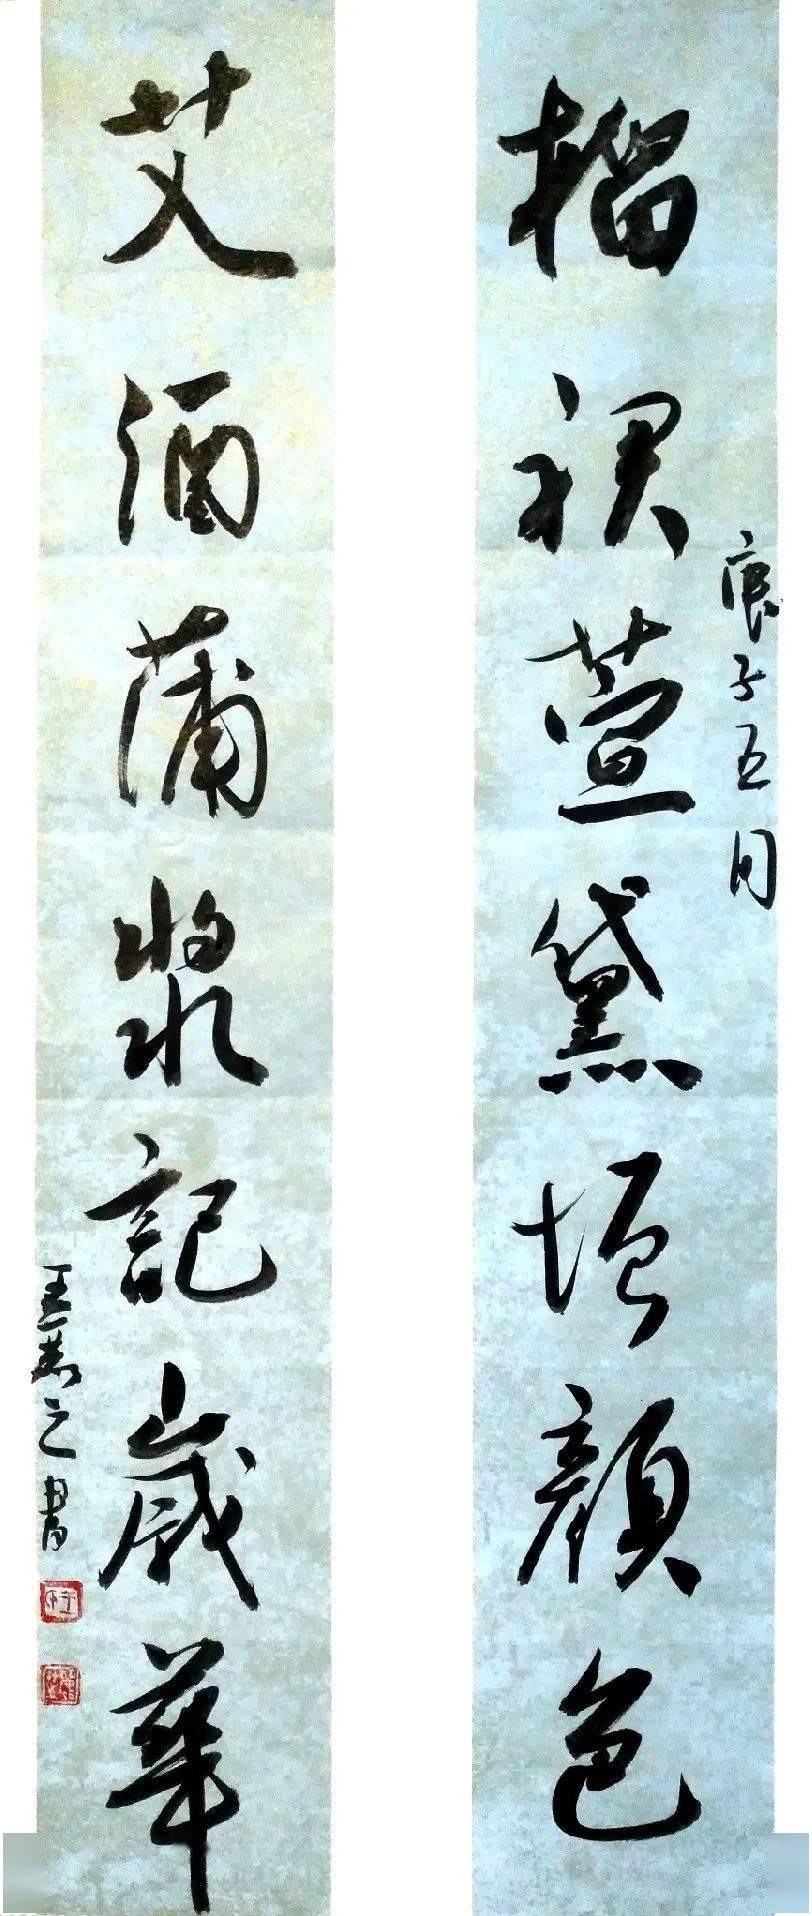 榴裙萱黛增顏色
庚子五月
艾酒蒲漿記歲華
之書